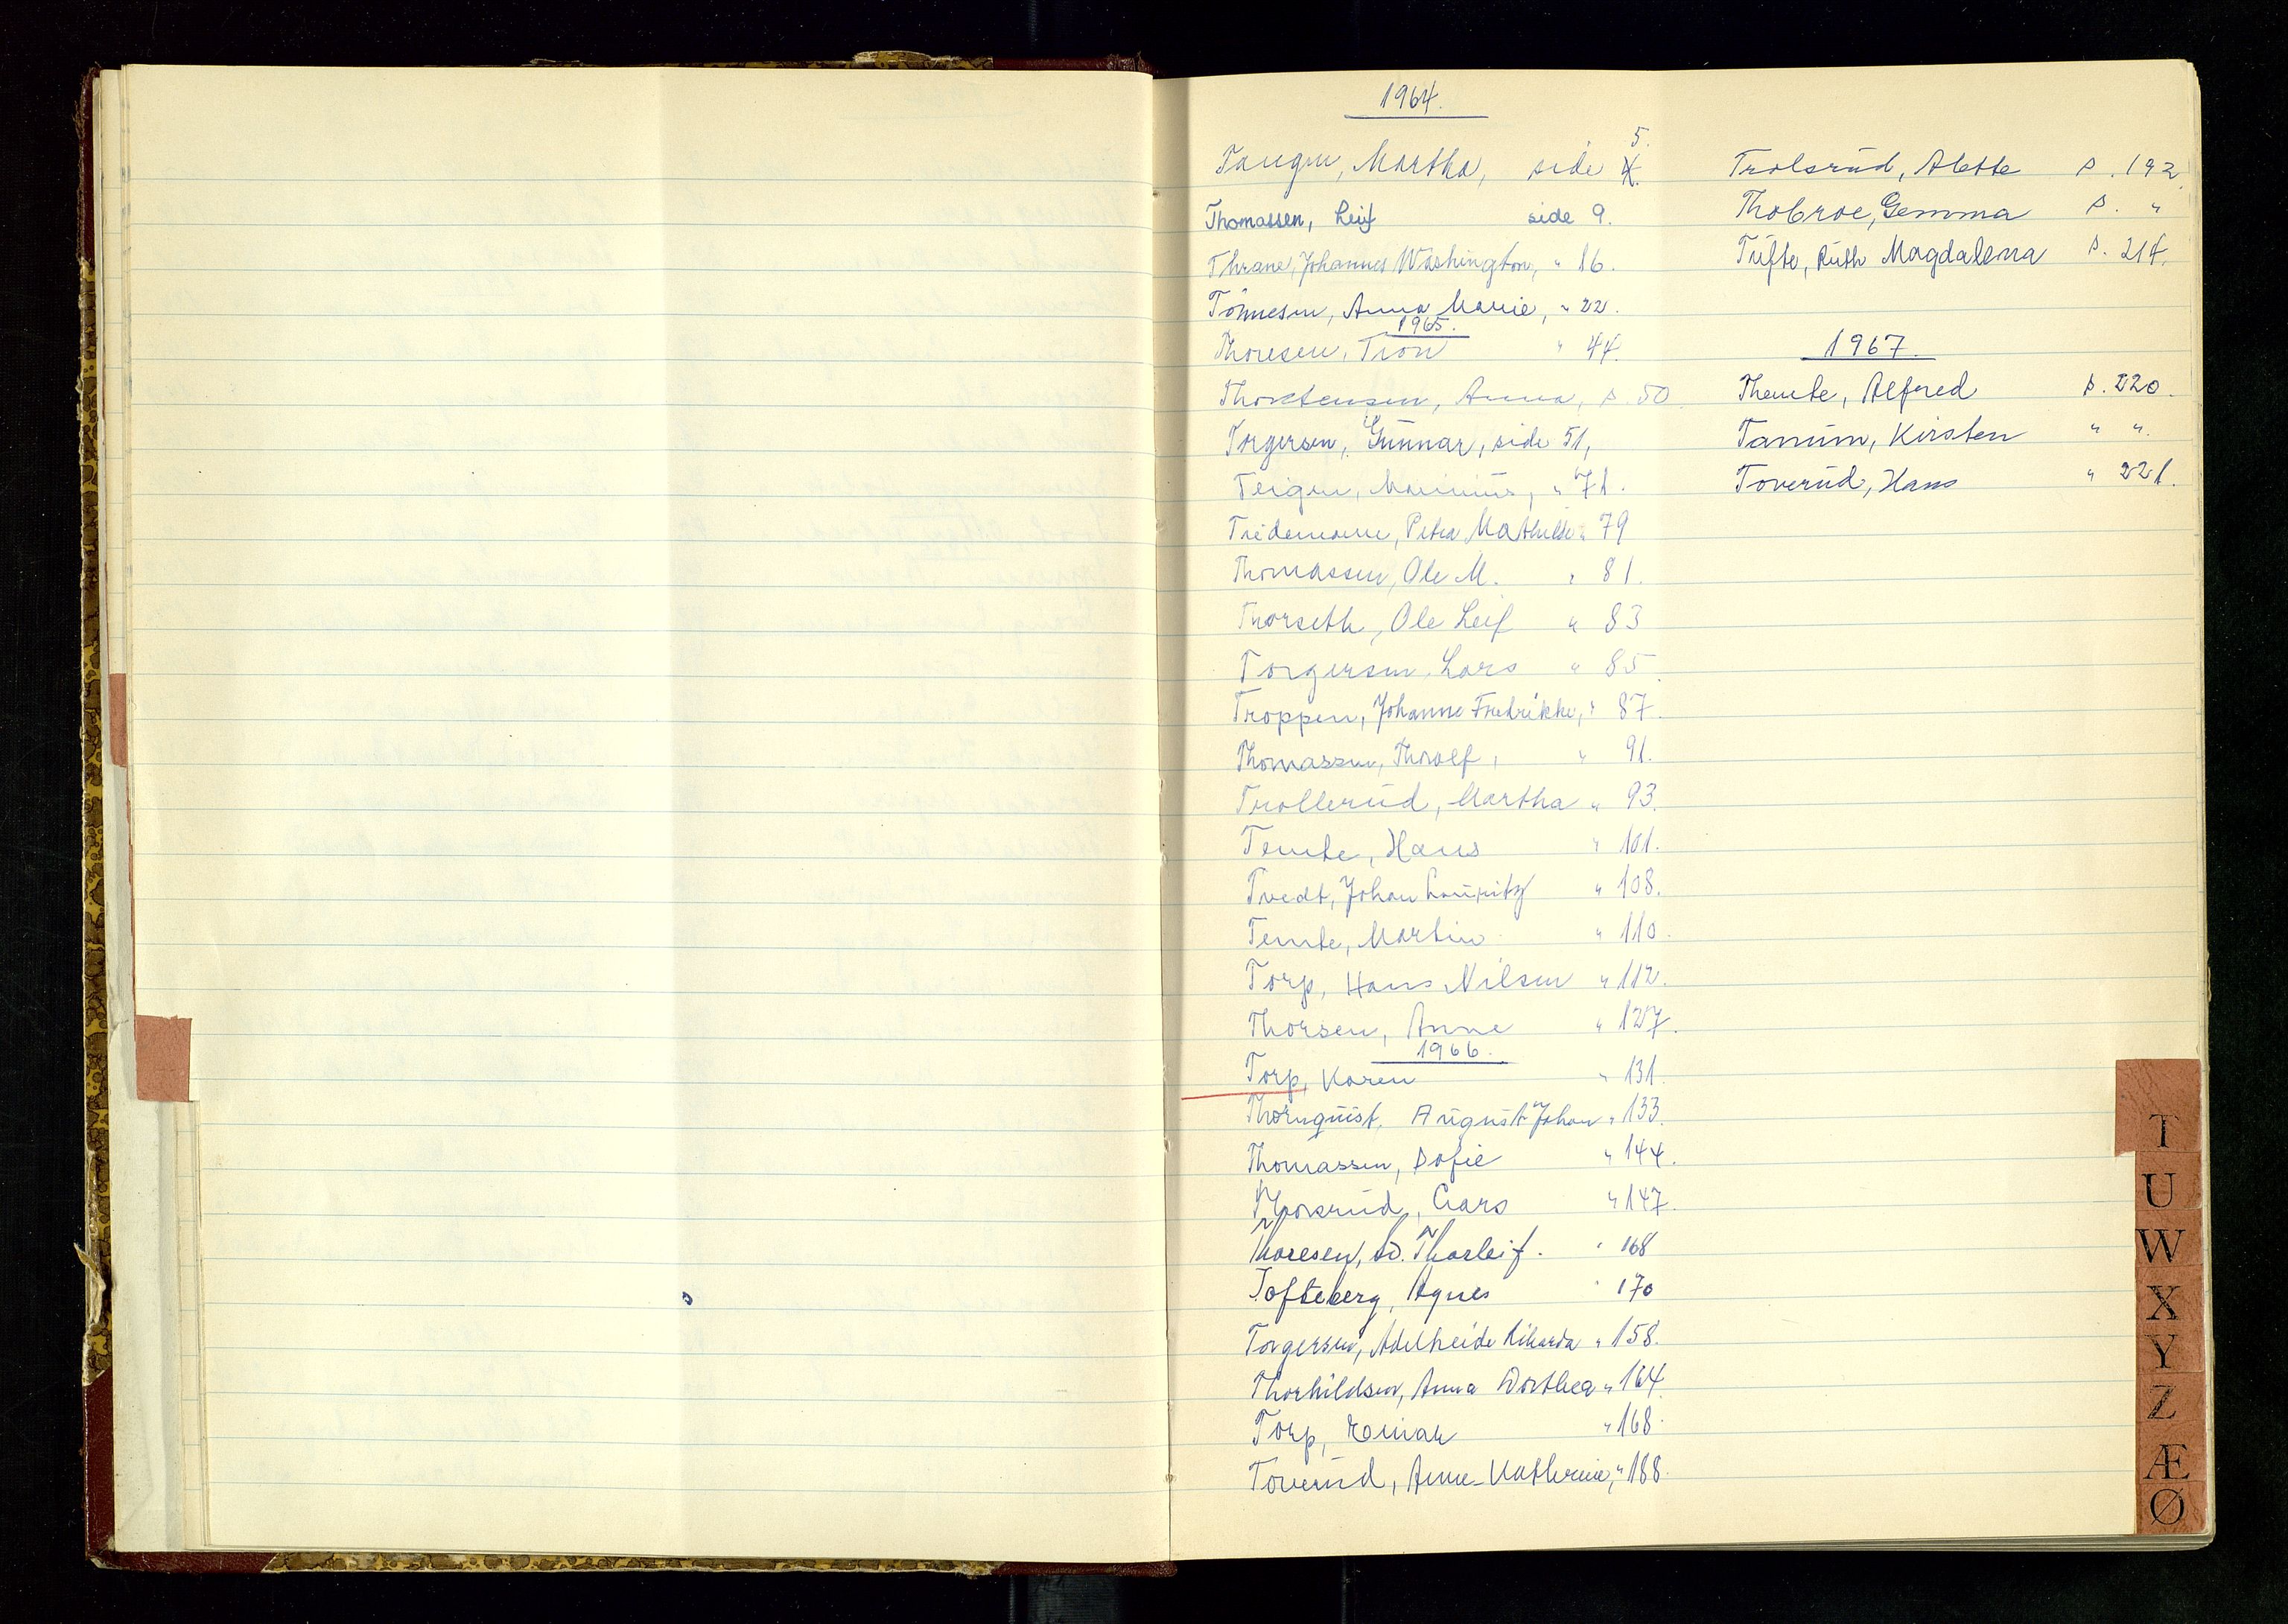 1964.
Tangen, Martha, side 4. 5.
Thomassen, Leif side 9.
Thrane, Johannes Washington, " 16.
Tönnesen, Anna Marie, " 22.
1965.
Thoresen, Tron " 44.
Thorstensen, Anna, s. 50.
Torgersen, Gunnar, side 51,
Teigen, Marinius, " 71.
Tiedemann, Petra Mathilde " 79
Thomassen, Ole M. " 81.
Thorseth, Ole Leif " 83
Torgersen, Lars " 85.
Troppen, Johanne Fredrikke, " 87.
Thomassen, Thorolf, " 91.
Trollerud, Martha " 93.
Temte, Hans " 101.
Tvedt, Johan Lauritz " 108.
Temte, Martin " 110.
Torp, Hans Nilsen " 112.
Thorsen, Anne " 127.
1966.
Torp, Karen " 131.
Thornquist, August Johan " 133.
Thomassen, Sofie " 144.
Thorsrud, Lars " 147.
Thoresen, Thorleif. " 168
Tofteberg, Agnes " 170
Torgersen, Adelheide Rikarda " 158.
Thorkildsen, Anna Dorthea " 164.
Torp, Einar " 168.
Toverud, Anne-Kathrine, " 188.
Trolsrud, Alette s. 192.
Thobroe, Gemma s. "
Tufte, Ruth Magdalena s. 214.
1967.
Themte, Alfred s. 220.
Tanum, Kirsten " ".
Toverud, Hans " 221.
T
U
W
X
Y
Z
Æ
Ø